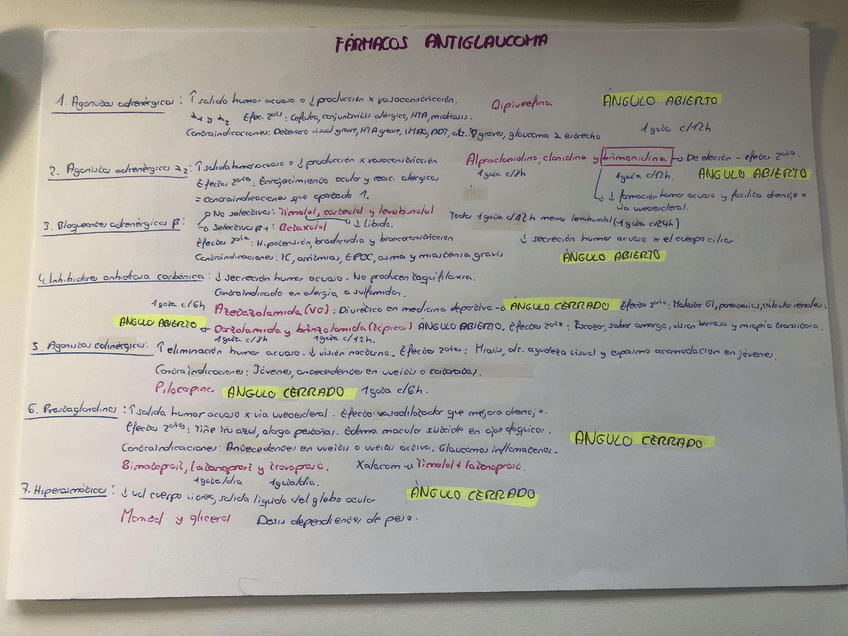 FÁRMACOS ANTIGLAUCOMA
1. Agonistas adrenérgicos: ↑ salida humor acuoso o ↓ producción x vasoconstricción. Dipivefrina ÁNGULO ABIERTO
α1 y α2 Efec. 2rios: Cefalea, conjuntivitis alérgica, HTA, midriasis. 1 gota c/12h
Contraindicaciones: Deterioro visual grave, HTA grave, IMAO, ADT, graves, glaucoma estrecho
2. Agonistas adrenérgicos α2: ↑ salida humor acuoso o ↓ producción x vasoconstricción Alproclonidina, clonidina y brimonidina → De elección - efectos 2rios.
Efectos 2rios: Enrojecimiento ocular y reac. alérgicas 1 gota c/8h 1 gota c/12h. ÁNGULO ABIERTO
= contraindicaciones que apartado 1. ↓ formación humor acuoso y facilita drenaje x vía uveoescleral.
3. Bloqueantes adrenérgicos β: No selectivos: Timolol, carteolol y levobunolol Todos 1 gota c/12h menos levobunolol (1 gota c/24h)
Selectivos β1: Betaxolol ↓ libido.
Efectos 2rios: Hipotensión, bradicardia y broncoconstricción ↓ secreción humor acuoso x el cuerpo ciliar
Contraindicaciones: IC, arritmias, EPOC, asma y miastenia gravis ÁNGULO ABIERTO
4. Inhibidores anhidrasa carbónica: ↓ secreción humor acuoso. No producen taquifilaxia.
Contraindicado en alergia a sulfamidas.
1 gota c/6h Acetazolamida (VO): Diurético en medicina deportiva → ÁNGULO CERRADO Efectos 2rios: Malestar GI, parestesias, cálculos renales.
ÁNGULO ABIERTO Dorzolamida y brinzolamida (tópicas) ANGULO ABIERTO. Efectos 2rios: Escozor, sabor amargo, visión borrosa y miopía transitoria.
1 gota c/8h 1 gota c/12h.
5. Agonistas colinérgicos: ↑ eliminación humor acuoso. ↓ visión nocturna. Efectos 2rios: Miosis, alt. agudeza visual y espasmo acomodación en jóvenes.
Contraindicaciones: Jóvenes, antecedentes en uveítis o cataratas.
Pilocarpina ÁNGULO CERRADO 1 gota c/6h.
6. Prostaglandinas: ↑ salida humor acuoso x vía uveoescleral. Efecto vasodilatador que mejora drenaje.
Efectos 2rios: Tiñe iris azul, alarga pestañas. Edema macular quístico en ojos afáquicos. ÁNGULO CERRADO
Contraindicaciones: Antecedentes en uveítis o uveítis activa. Glaucomas inflamatorios.
Bimatoprost, latanoprost y travoprost. Xalacom → Timolol + latanoprost.
1 gota/día 1 gota/día.
7. Hiperosmóticos: ↓ vol cuerpo vítreo, salida líquido del globo ocular ÁNGULO CERRADO
Manitol y glicerol Dosis dependientes de peso.